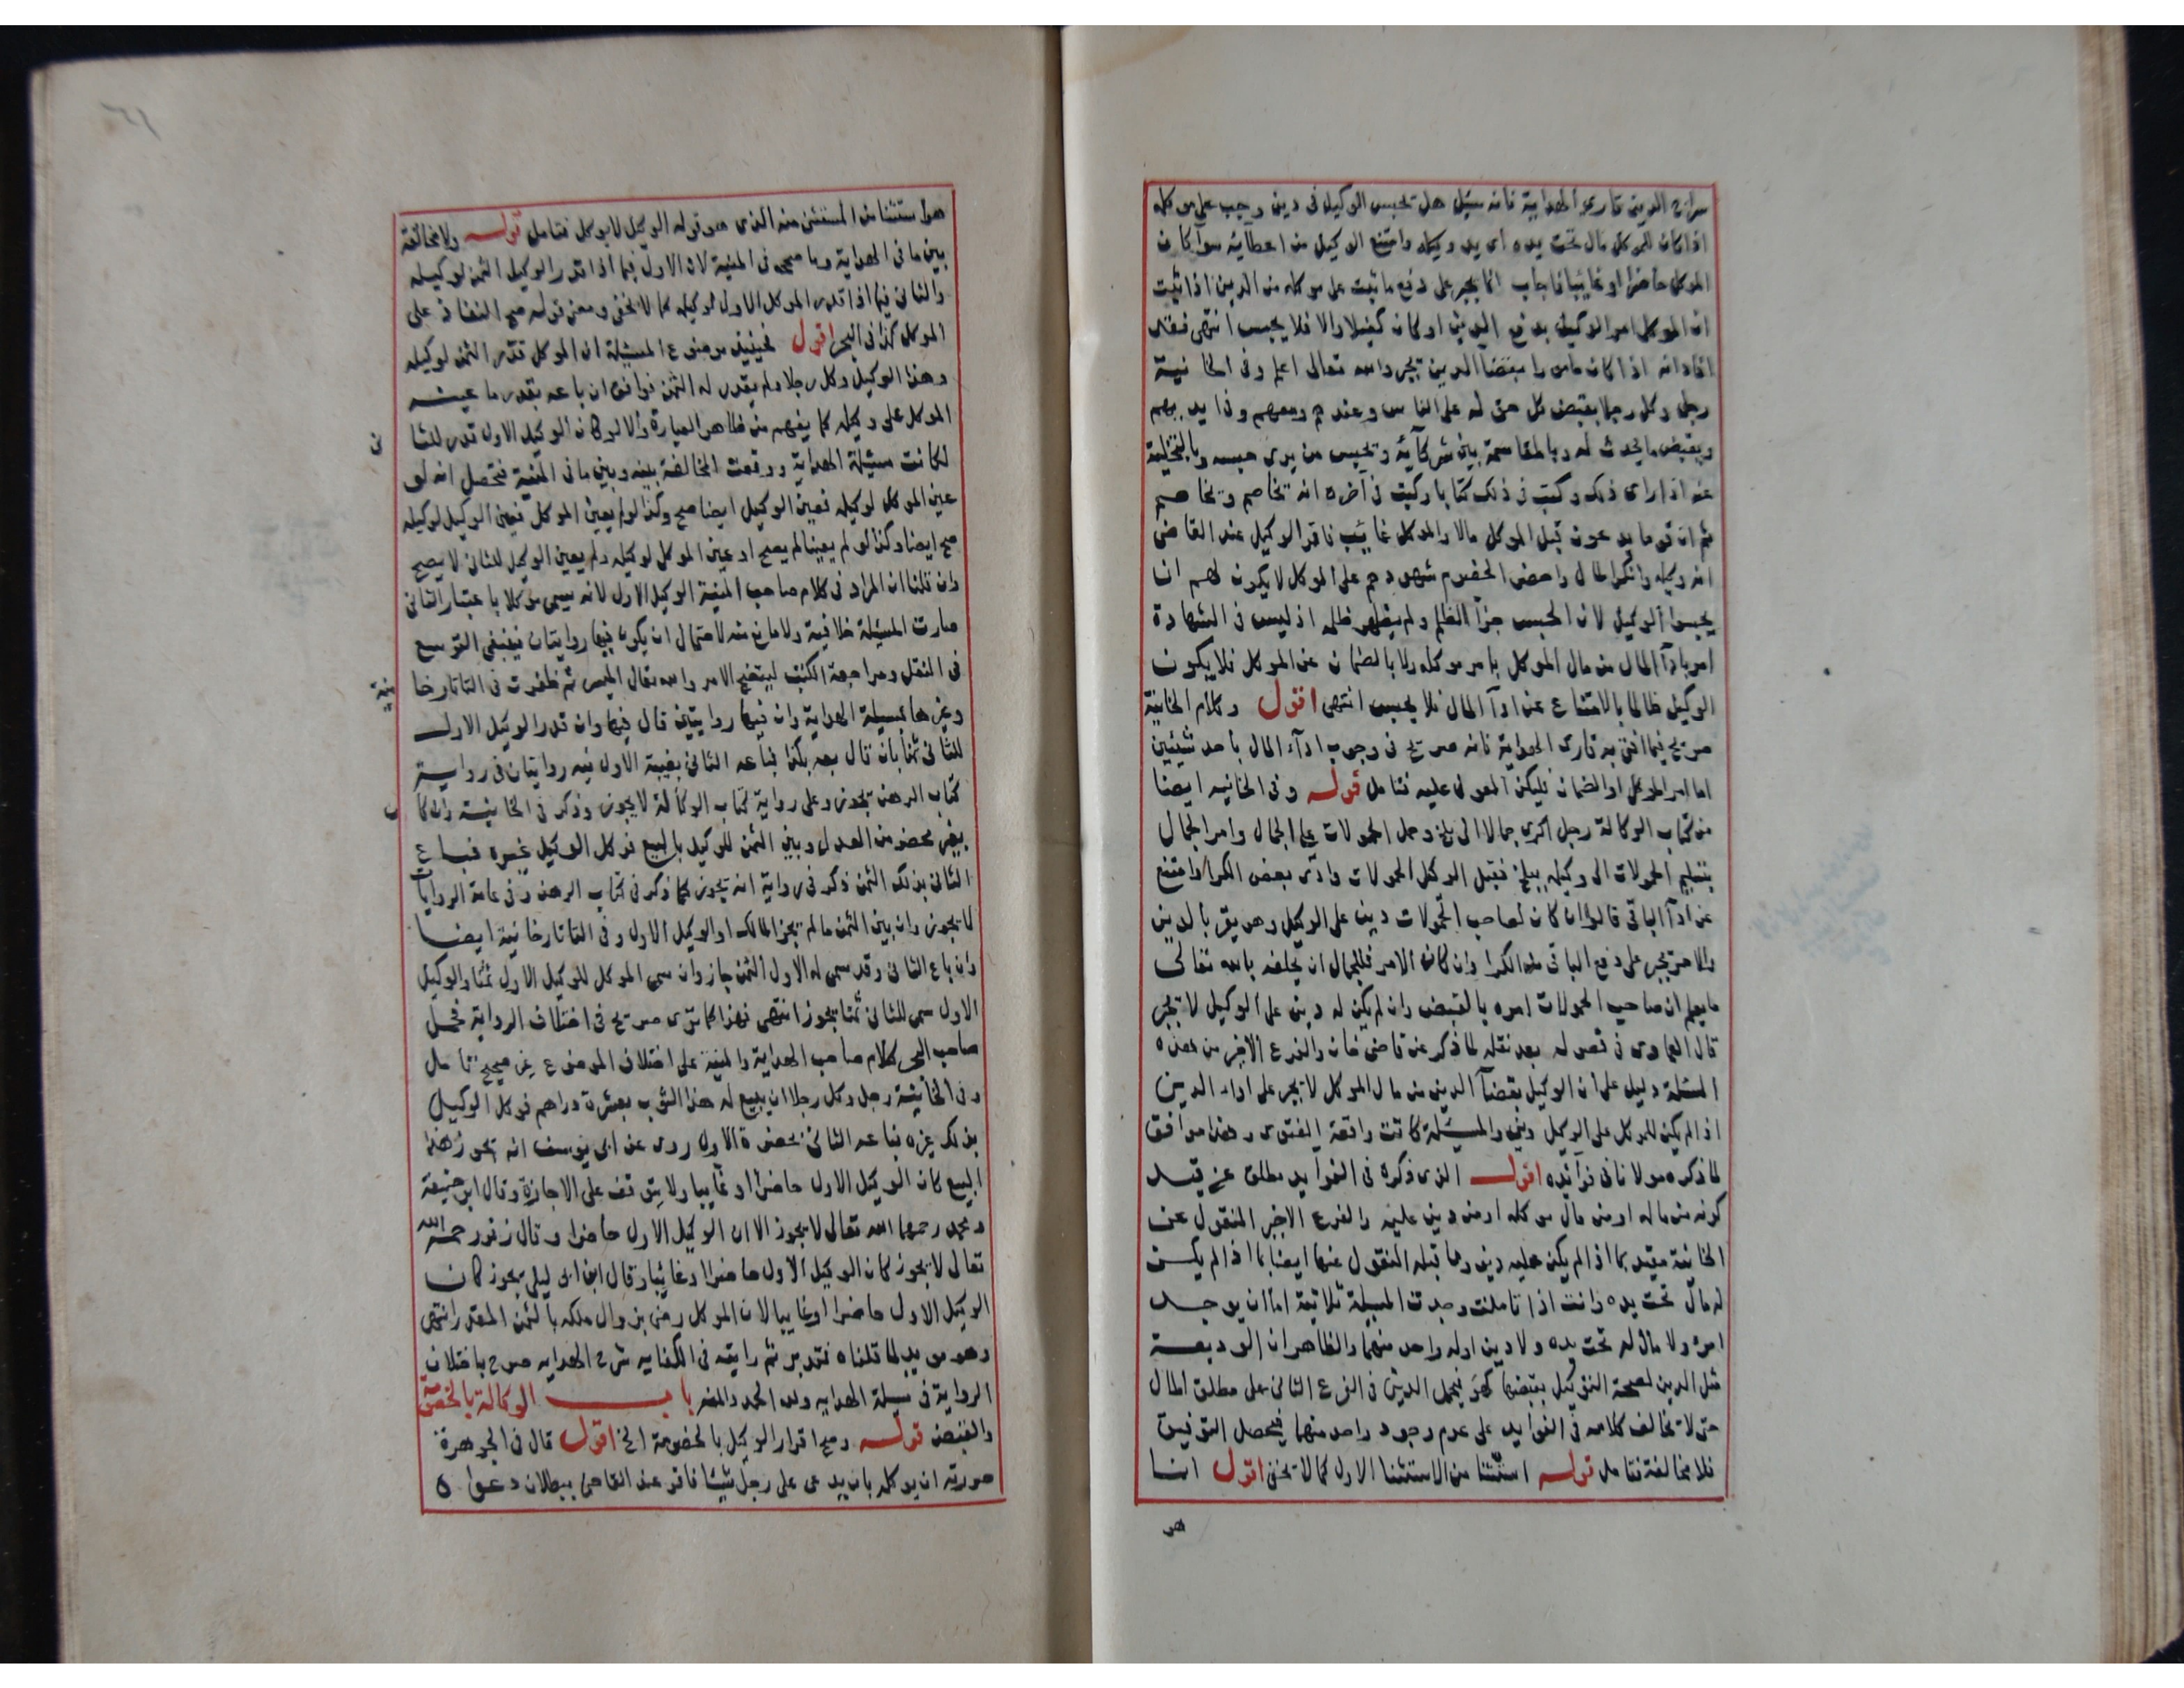 سراج الدين قارى الهداية فانه سئل هل يحبس الوكيل فى دين وجب على موكله
اذا كان للموكل مال تحت يده اى يد وكيله وامتنع الوكيل من اعطائه سواء كان
الموكل حاضرا او غايبا فاجاب انما يجبر على دفع ما ثبت على موكله من الدين اذا ثبت
ان الموكل امر الوكيل بدفع الدين او كان كفيلا والا فلا يحبس انتهى فقد
افاد انه اذا كان مامورا بقضا الدين يجبر والله تعالى اعلم وفى الخانية
رجل وكل رجلا بقبض كل حق له على الناس وعندهم ومعهم وفى ايديهم
وبقبض ما يحدث له وبالمقاسمة بين شركائه وبحبس من يرى حبسه وبالتخلية
عنه اذا راى ذلك وكتب فى ذلك كتابا وكتب فى آخره انه يخاصم ويخاصم
ثم ان قوما يدعون قبل الموكل مالا والموكل غايب فاقر الوكيل عند القاضى
انه وكيله وانكر المال واحضر الخصوم شهودهم على الموكل لا يكون لهم ان
يحبسوا الوكيل لان الحبس جزآ الظلم ولم يظهر ظلمه اذ ليس فى الشهادة
امر بادآ المال من مال الموكل بامر موكله ولا بالضمان عن الموكل فلا يكون
الوكيل ظالما بالامتناع عن ادآ المال فلا يحبس انتهى اقول وكلام الخانية
صريح فيما افتى به قارى الهداية فانه صريح فى وجوب ادآء المال باحد شيئين
اما امر الموكل او الضمان فليكن المعول عليه فتامل قوله وفى الخانيه ايضا
من كتاب الوكالة رجل اكرى جمالا الى بلخ وحمل الحمولات على الجمال وامر الجمال
بتسليم الحمولات الى وكيله ببلخ فقبل الوكيل الحمولات وادى بعض الكرا وامتنع
عن ادآ الباقى قالوا ان كان لصاحب الحمولات دين على الوكيل وهو يقر بالدين
والامر يجبر على دفع الباقى من الكرا وان كان الامر فللجمال ان يحلفه بالله تعالى
ما يعلم ان صاحب الحمولات امره بالقبض وان لم يكن له دين على الوكيل لا يجبر
قال العمادى فى فصوله بعد نقله لما ذكر عن قاضى خان والفرع الاخير من هذه
المسئلة دليل على ان الوكيل بقضآ الدين من مال الموكل لا يجبر على اداء الدين
اذا لم يكن للموكل على الوكيل دين والمسئلة كانت واقعة الفتوى وهذا موافق
لما ذكره مولانا فى فوآئده اقول الذى ذكره فى الفوايد مطلق عن قيد
كونه من ماله او من مال موكله او من دين عليه والفرع الاخير المنقول عن
الخانية مقيد بما اذا لم يكن عليه دين وما قبله المنقول عنها ايضا بما اذا لم يكن
له مال تحت يده وانت اذا تاملت وجدت المسيلة ثلاثية اما ان يوجد
امره ولا مال له تحت يده ولا دين اوله واحد منهما والظاهر ان الوديعة
مثل الدين لصحة التوكيل بقبضها كهو فيحمل الدين فى الفرع الثانى على مطلق المال
حتى لا تخالف كلامه فى الفوايد على عدم وجود واحد منهما فيحصل التوفيق
فلا مخالفة فتامل قوله استثنا من الاستثنا الاول كما لا يخفى اقول انما
هو
هو استثنا من المستثنى منه الذى هو قوله الوكيل لا يوكل فتامل قوله ولا مخالفة
بين ما فى الهداية وما صححه فى المنية لان الاول فيما اذا قدر الوكيل الثمن لوكيله
والثانى فيما اذا قدر الموكل الاول لوكيله كما لا يخفى ومعنى قوله صح النفاذ على
الموكل كذا فى البحر اقول فحينئذ موضوع المسئلة ان الموكل قدر الثمن لوكيله
وهذا الوكيل وكل رجلا ولم يقدر له الثمن فوافق ان باعه بقدر ما عينه
الموكل على وكيله كما يفهم من ظاهر العبارة والا لو كان الوكيل الاول قدر للثا
نى
لكانت مسئلة الهداية ووقعت المخالفة بينه وبين ما فى المنية فتحصل انه لو
عين الموكل لوكيله فعين الوكيل ايضا صح وكذا لو لم يعين الموكل فعين الوكيل لوكيله
صح ايضا وكذا لو لم يعينا لم يصح او عين الموكل لوكيله ولم يعين الوكيل للثانى لا يصح
وان قلنا ان المراد فى كلام صاحب المنية الوكيل الاول لانه يسمى موكلا باعتبار الثانى
صارت المسئلة خلافية ولا مانع منه لاحتمال ان يكون فيها روايتان فينبغى التوسع
فى النقل ومراجعة الكتب ليتضح الامر والله تعالى الميسر ثم ظفرت فى التاتارخا
نية
وغيرها بمسيلة الهداية وان فيها روايتين قال فيها وان قدر الوكيل الاول
للثانى ثمنا بان قال بعه بكذا فباعه الثانى بغيبة الاول فيه روايتان فى رواية
كتاب الرهن يجوز وعلى رواية كتاب الوكالة لا يجوز وذكر فى الخانية وان كا
ن
بغير محضر من العدل وبين الثمن للوكيل بالبيع فوكل الوكيل غيره فباع
الثانى بذلك الثمن ذكر فى رواية انه يجوز كما ذكر فى كتاب الرهن وفى عامة الروايا
لا يجوز وان بين الثمن ما لم يجز المالك او الوكيل الاول وفى التاتارخانية ايضا
وان باع الثانى وقد سمى له الاول الثمن جاز وان سمى الموكل للوكيل الاول ثمنا والوكيل
الاول سمى للثانى ثمنا يجوز انتهى فهذا كما ترى صريح فى اختلاف الرواية فحمل
صاحب البحر كلام صاحب الهداية والمنية على اختلاف الموضوع غير صحيح تامل
وفى الخانية رجل وكل رجلا ان يبيع له هذا الثوب بعشرة دراهم فوكل الوكيل
بذلك غيره فباعه الثانى بحضرة الاول روى عن ابى يوسف انه يجوز هذا
البيع كان الوكيل الاول حاضرا او غايبا ولا يتوقف على الاجازة وقال ابو حنيفة
ومحمد رحمهما الله تعالى لا يجوز الا ان الوكيل الاول حاضرا وقال زفر رحمه الله
تعالى لا يجوز كان الوكيل الاول حاضرا او غائبا وقال ابن ابى ليلى يجوز كان
الوكيل الاول حاضرا او غايبا لان الموكل رضى بزوال ملكه بالثمن المقدر انتهى
وهو مويد لما قلناه فتدبر ثم رايته فى الكفايه شرح الهدايه صرح باختلاف
الرواية فى مسيلة الهدايه ولله الحمد والمنه باب الوكالة بالخصومة
والقبض قوله وصح اقرار الوكيل بالخصومة الخ اقول قال فى الجوهرة
صورته ان يوكله بان يدعى على رجل شيئا فاقر عند القاضى ببطلان دعواه